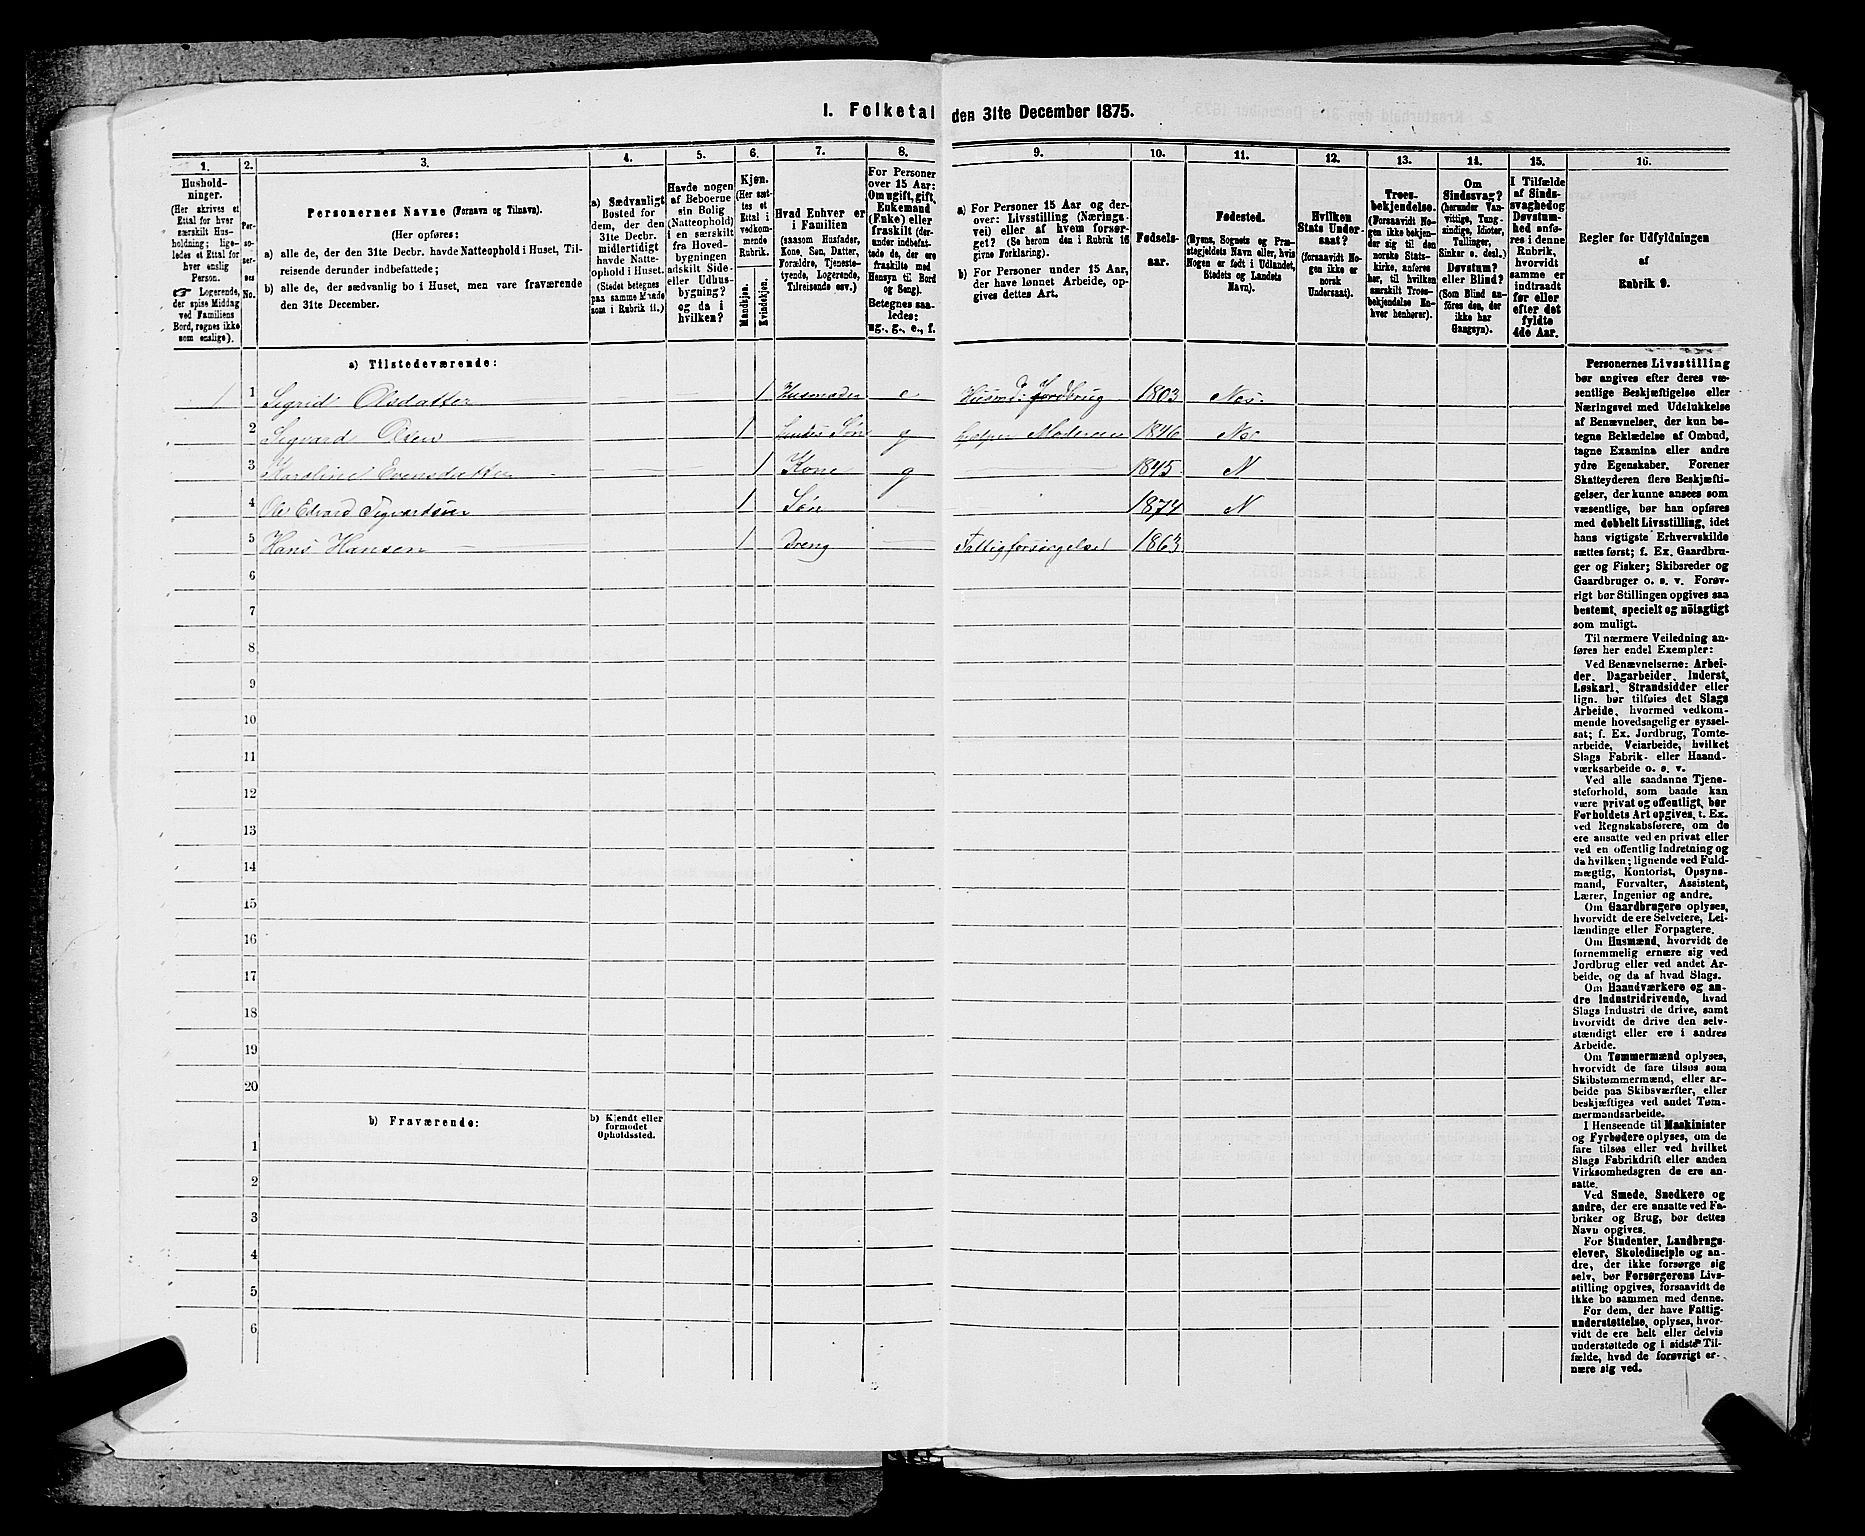 1. Folketal den 31te December 1875.
1.
Husholdninger.
(Her skrives et Ettal for hver særskilt Husholdning; ligeledes et Ettal for hver enslig Person.
☞ Logerende, der spise Middag ved Familiens Bord, regnes ikke som enslige).
2.
Personernes No.
3.
Personernes Navne (Fornavn og Tilnavn).
(Her opføres:
a) alle de, der den 31te Decbr. havde Natteophold i Huset, Tilreisende derunder indbefattede;
b) alle de, der sædvanlig bo i Huset, men vare fraværende den 31te December.
4.
a) Sædvanligt Bosted for dem, der den 31te Decbr. midlertidigt havde Natteophold i Huset. (Stedet betegnes paa samme Maade som i Rubrik 11.)
5.
Havde nogen af Beboerne sin Bolig (Natteophold) i en særskilt fra Hovedbygningen adskilt Side- eller Udhusbygning? og da i hvilken?
6.
Kjøn.
(Her sættes et Ettal i vedkommende Rubrik.
Mandkjøn.
Kvindekjøn.
7.
Hvad Enhver er i Familien
(saasom Husfader, Kone, Søn, Datter, Forældre, Tjenestetyende, Logerende, Tilreisende osv.)
8.
For Personer over 15 Aar: Om ugift, gift, Enkemand (Enke) eller fraskilt (derunder indbefattede de, der ere fraskilte med Hensyn til Bord og Seng).
Betegnes saaledes: ug., g., e., f.
9.
a) For Personer 15 Aar og derover: Livsstilling (Næringsvei) eller af hvem forsørget? (Se herom den i Rubrik 16 givne Forklaring).
b) For Personer under 15 Aar, der have lønnet Arbeide, opgives dettes Art.
10.
Fødselsaar.
11.
Fødested.
(Byens, Sognets og Præstegjeldets Navn eller, hvis Nogen er født i Udlandet, Stedets og Landets Navn).
12.
Hvilken Stats Undersaat?
(forsaavidt Nogen ikke er norsk Undersaat).
13.
Troesbekjendelse.
(Forsaavidt Nogen ikke bekjender sig til den norske Statskirke, anføres her, til hvilken særskilt Troesbekjendelse Enhver henhører).
14.
Om Sindssvag? (herunder Vanvittige, Tungsindige, Idioter, Tullinger, Sinker o. desl.) Døvstum? eller Blind? (Som Blind anføres den, der ikke har Gangsyn).
15.
I Tilfælde af Sindssvaghed og Døvstumhed anføres i denne Rubrik, hvorvidt samme er indtraadt før eller efter det fyldte 4de Aar.
16.
Regler for Udfyldningen af Rubrik 9.
a) Tilstedeværende:
1 1 Sigrid Olsdatter 1 Husmoder e Husm: Jordbrug 1803 Nes.
2 Sigvard Olsen 1 hendes Søn g hjelper Moderen 1846 Nes
3 Karoline Evensdatter 1 Kone g 1845. N
4 Ole Edvard Sigvardsen 1 Søn 1874 N
5 Hans Hansen 1 Dreng Fattigforsørgelse 1863
6
7
8
9
10
11
12
13
14
15
16
17
18
19
20
b) Fraværende:
b) Kjendt eller formodet Opholdssted.
1
2
3
4
5
6
Personernes Livsstilling
bør angives efter deres væ-
sentlige Beskjæftigelse eller
Næringsvei med Udelukkelse
af Benævnelser, der kun be-
tegne Beklædelse af Ombud,
tagne Examina eller andre
ydre Egenskaber. Forener
Skatteyderen flere Beskjæfti-
gelser, der kunne ansees som
væsentlige, bør han opføres
med dobbelt Livsstilling, idet
hans vigtigste Erhvervskilde
sættes først; f. Ex. Gaardbru-
ger og Fisker; Skibsreder og
Gaardbruger o. s. v. Forøv-
rigt bør Stillingen opgives saa
bestemt, specielt og nøiagtigt
som muligt.
Til nærmere Veiledning an-
føres her endel Exempler:
Ved Benævnelserne: Arbei-
der, Dagarbeider, Inderst,
Løskarl, Strandsidder eller
lign. bør tilføies det Slags
Arbeide, hvormed vedkom-
mende hovedsagelig er syssel-
sat; f. Ex. Jordbrug, Tomte-
arbeide, Veiarbeide, hvilket
Slags Fabrik- eller Haand-
værksarbeide o. s. v.
Ved alle saadanne Tjene-
steforhold, som baade kan
være privat og offentligt, bør
Forholdets Art opgives, t. Ex.
ved Regnskabsførere, om de
ere ansatte ved en privat eller
ved en offentlig Indretning og
da hvilken; lignende ved Fuld-
mægtig, Kontorist, Opsyns-
mand, Forvalter, Assistent,
Lærer, Ingeniør og andre.
Om Gaardbrugere oplyses,
hvorvidt de ere Selveiere, Lei-
lændinge eller Forpagtere.
Om Husmænd, hvorvidt de
fornemmelig ernære sig ved
Jordbrug eller ved andet Ar-
beide, og da af hvad Slags.
Om Haandværkere og an-
dre Industridrivende, hvad
Slags Industri de drive, samt
hvorvidt de drive den selv-
stændigt eller ere i andres
Arbeide.
Om Tømmermænd oplyses,
hvorvidt de fare tilsøs som
Skibstømmermænd, eller ar-
beide paa Skibsværfter, eller
beskjæftiges ved andet Tøm-
mermandsarbeide.
I Henseende til Maskinister
og Fyrbødere oplyses, om de
fare tilsøs eller ved hvilket
Slags Fabrikdrift eller anden
Virksomhedsgren de ere an-
satte.
Ved Smede, Snedkere og
andre, der ere ansatte ved Fa-
briker og Brug, bør dettes
Navn opgives.
For Studenter, Landbrugs-
elever, Skoledisciple og an-
dre, der ikke forsørge sig
selv, bør Forsørgerens Livs-
stilling opgives, forsaavidt de
ikke bo sammen med denne.
For dem, der have Fattig-
understøttelse, oplyses, hvor-
vidt de ere helt eller delvis
understøttede og i sidste Til-
fælde, hvad de forøvrigt er-
nære sig ved.